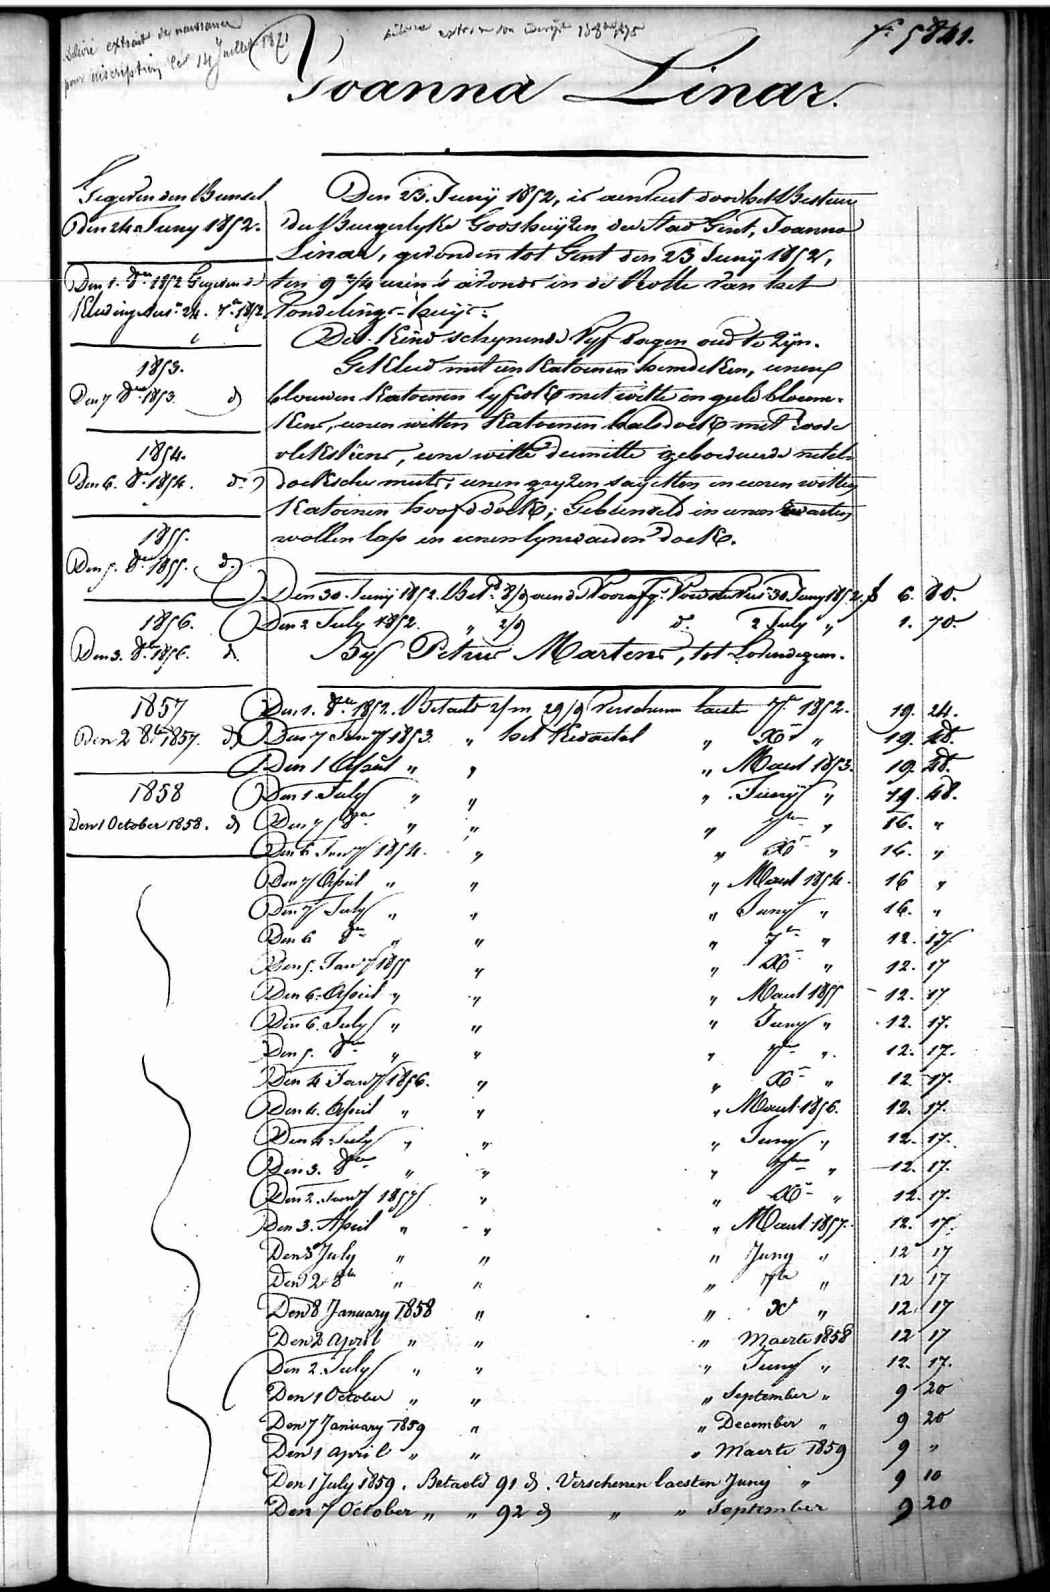 Delivré extrait de naissance
pour inscription le 14 Juillet 1871
fº 5841.
Joanna Linar.
Gegeven den Bundel
Den 24 Juny 1852.
Den 1. 8ber 1852 Gegeven de
Kleding Nr. 24. 7ber 1852
1853.
Den 7 8ber 1853. d
1854.
Den 6. 8ber 1854. do
1855.
Den 5. 8ber 1855. d.
1856.
Den 3. 8ber 1856. d.
1857
Den 2 8ber 1857. d
1858
Den 1 October 1858. d
Den 23. Junÿ 1852, is aenveert door het Bestuur
der Burgerlyke Godshuÿzen der Stad Gent, Joanna
Linar, gevonden tot Gent den 23 Junÿ 1852,
ten 9 3/4 uren 's avonds in de Rolle van het
Vondelings-huÿs.
Dit Kind schynende Vyf dagen oud te zyn.
Gekleed met een Katoenen hemdeken, eenen
blauwen Katoenen lyfrok met witte en geele bloeme-
kens, eenen witten Katoenen halsdoek met roode
vlekskens, eene witte demitte geboordeerde netel-
doeksche muts, eenen gryzen sayetten en eenen witten
Katoenen hoofddoek; Gebundeld in eenen zwarten
wollen lap en eenen lynwaeden doek.
Den 30. Junÿ 1852. Bet. 8/d aen de Voorafg. Voedster 30 Juny 1852. f 6. 80.
Den 2 July 1852. " 2/d d. 2 July " 1. 70.
Bÿ Petrus Martens, tot Lovendegem.
Den 1. 8ber 1852. Betaeld 2/m 29/d Verschenen laest 7ber 1852. 19. 24.
Den 7 Janry 1853. " het Kwartael " Xber " 19. 48.
Den 1 April " " " Maert 1853. 19. 48.
Den 1. July " " " Junÿ " 19. 48.
Den 7 8ber " " " 7ber " 16. "
Den 6 Janry 1854. " " Xber " 16. "
Den 7 April " " " Maert 1854. 16 "
Den 7 July " " " Juny " 16. "
Den 6 8ber " " " 7ber " 12. 17.
Den 5. Janry 1855 " " Xber " 12. 17
Den 6. April " " " Maert 1855 12. 17
Den 6. July " " " Juny " 12. 17.
Den 5. 8ber " " " 7ber " 12. 17.
Den 4 Janry 1856. " " Xber " 12 17.
Den 4. April " " " Maert 1856. 12. 17.
Den 4 July " " " Juny " 12. 17.
Den 3. 8ber " " " 7ber " 12. 17.
Den 2. Janry 1857 " " Xber " 12. 17.
Den 3. April " " " Maert 1857. 12. 17.
Den 3 July " " " Juny " 12 17
Den 2 8ber " " " 7ber " 12 17
Den 8 January 1858 " " Xber " 12 17
Den 2 April " " " Maerte 1858 12 17
Den 2. July " " " Juny " 12. 17.
Den 1 October " " " September " 9 20
Den 7 January 1859 " " December " 9 20
Den 1 April " " " Maerte 1859 9 "
Den 1 July 1859. Betaeld 91 d. Verschenen laesten Juny " 9 10
Den 7 October " " 92 d " " September 9 20